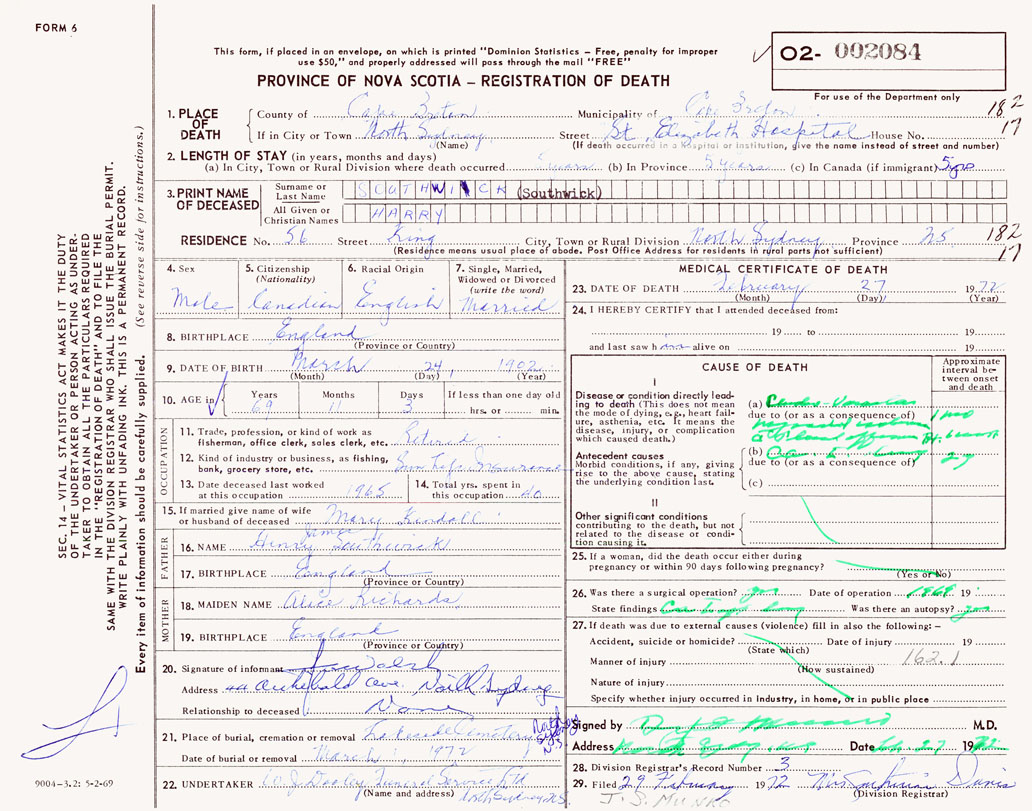 FORM 6
This form, if placed in an envelope, on which is printed "Dominion Statistics – Free, penalty for improper
use $50," and properly addressed will pass through the mail "FREE"
PROVINCE OF NOVA SCOTIA – REGISTRATION OF DEATH
02- 002084
For use of the Department only
182
17
1. PLACE OF DEATH
County of Cape Breton Municipality of Cape Breton
If in City or Town North Sydney Street St. Elizabeth Hospital House No.
(Name) (If death occurred in a Hospital or Institution, give the name instead of street and number)
2. LENGTH OF STAY (in years, months and days)
(a) In City, Town or Rural Division where death occurred years (b) In Province 5 years (c) In Canada (if immigrant) 5 yrs
3. PRINT NAME OF DECEASED
Surname or Last Name SOUTHWICK (Southwick)
All Given or Christian Names HARRY
RESIDENCE No. 56 Street King City, Town or Rural Division North Sydney Province NS
182
17
(Residence means usual place of abode. Post Office Address for residents in rural parts not sufficient)
4. Sex
Male
5. Citizenship (Nationality)
Canadian
6. Racial Origin
English
7. Single, Married, Widowed or Divorced (write the word)
Married
8. BIRTHPLACE England
(Province or Country)
9. DATE OF BIRTH March 24, 1902
(Month) (Day) (Year)
10. AGE in
Years Months Days If less than one day old
69 11 3 hrs. or min.
OCCUPATION
11. Trade, profession, or kind of work as fisherman, office clerk, sales clerk, etc. Retired
12. Kind of industry or business, as fishing, bank, grocery store, etc. Sun Life Insurance
13. Date deceased last worked at this occupation 1965
14. Total yrs. spent in this occupation 40
15. If married give name of wife or husband of deceased Mary Kendall
FATHER
James
16. NAME Henry Southwick
17. BIRTHPLACE England
(Province or Country)
MOTHER
18. MAIDEN NAME Alice Richards
19. BIRTHPLACE England
(Province or Country)
20. Signature of informant Walsh
Address 44 Archibald Ave. North Sydney
Relationship to deceased None
21. Place of burial, cremation or removal Lakeside Cemetery North Sydney N.S.
Date of burial or removal March 1, 1972
22. UNDERTAKER W. J. Dooley Funeral Service Ltd
(Name and address) North Sydney N.S.
MEDICAL CERTIFICATE OF DEATH
23. DATE OF DEATH February 27 1972
(Month) (Day) (Year)
24. I HEREBY CERTIFY that I attended deceased from:
19 to 19
and last saw h alive on 19
CAUSE OF DEATH
Approximate interval between onset and death
I
Disease or condition directly leading to death (This does not mean the mode of dying, e.g., heart failure, asthenia, etc. It means the disease, injury, or complication which caused death.)
(a)
due to (or as a consequence of)
1 mo
Antecedent causes
Morbid conditions, if any, giving rise to the above cause, stating the underlying condition last.
(b)
due to (or as a consequence of)
(c)
II
Other significant conditions contributing to the death, but not related to the disease or condition causing it.
25. If a woman, did the death occur either during pregnancy or within 90 days following pregnancy?
(Yes or No)
26. Was there a surgical operation? yes Date of operation 1969 19
State findings Lung Was there an autopsy? yes
27. If death was due to external causes (violence) fill in also the following: –
Accident, suicide or homicide? Date of injury 19
(State which)
Manner of injury 162.1
(How sustained)
Nature of injury
Specify whether injury occurred in industry, in home, or in public place
Signed by M.D.
Address Date 27 1972
28. Division Registrar's Record Number 3
29. Filed 29 February 1972 Davis
(Division Registrar)
J. S. MUNRO
SEC. 14 – VITAL STATISTICS ACT MAKES IT THE DUTY
OF THE UNDERTAKER OR PERSON ACTING AS UNDER-
TAKER TO OBTAIN ALL THE PARTICULARS REQUIRED
IN THE "REGISTRATION OF DEATH" AND TO FILE THE
SAME WITH THE DIVISION REGISTRAR WHO SHALL ISSUE THE BURIAL PERMIT.
WRITE PLAINLY WITH UNFADING INK. THIS IS A PERMANENT RECORD.
Every item of information should be carefully supplied. (See reverse side for instructions.)
9004-3.2: 5-2-69